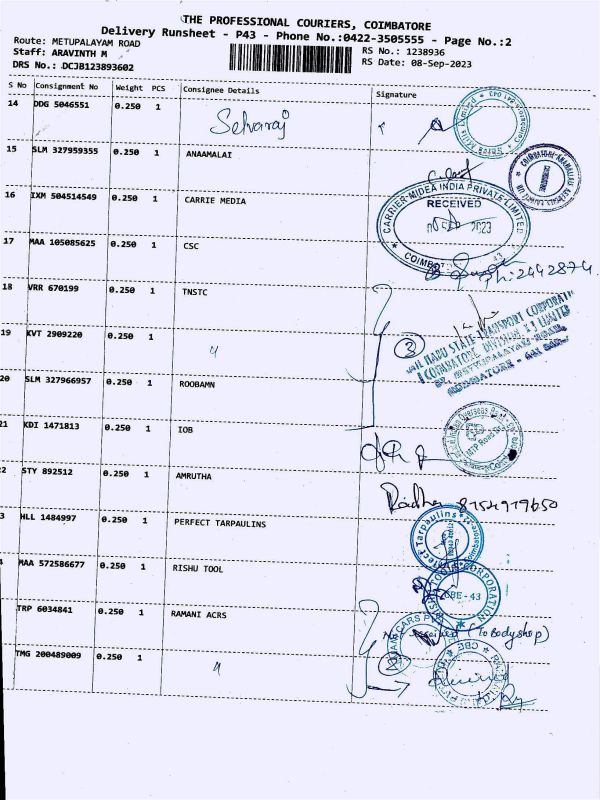 THE PROFESSIONAL COURIERS, COIMBATORE
Delivery Runsheet - P43 - Phone No.:0422-3505555 - Page No.:2
Route: METUPALAYAM ROAD
RS No.: 1238936
Staff: ARAVINTH M
RS Date: 08-Sep-2023
DRS No.: DCJB123893602
S No Consignment No Weight PCS Consignee Details Signature
14 DDG 5046551 0.250 1 Selvaraj
15 SLM 327959355 0.250 1 ANAAMALAI
16 IXM 504514549 0.250 1 CARRIE MEDIA
CARRIER-MIDEA INDIA PRIVATE LIMITED
RECEIVED
2023
17 MAA 105085625 0.250 1 CSC
Ph: 2442874
18 VRR 670199 0.250 1 TNSTC
TAMIL NADU STATE TRANSPORT CORPORATION
(COIMBATORE DIVISION I) LIMITED
19 KVT 2909220 0.250 1 "
3
20 SLM 327966957 0.250 1 ROOBAMN
21 KDI 1471813 0.250 1 IOB
MTP Road
22 STY 892512 0.250 1 AMRUTHA
Radha 8754979650
3 HLL 1484997 0.250 1 PERFECT TARPAULINS
Perfect Tarpaulins
MAA 572586677 0.250 1 RISHU TOOL
RISHU TOOLS CORPORATION
CBE - 43
TRP 6034841 0.250 1 RAMANI ACRS
Not received (To Bodyshop)
TMG 200489009 0.250 1 "
2
CBE
Received